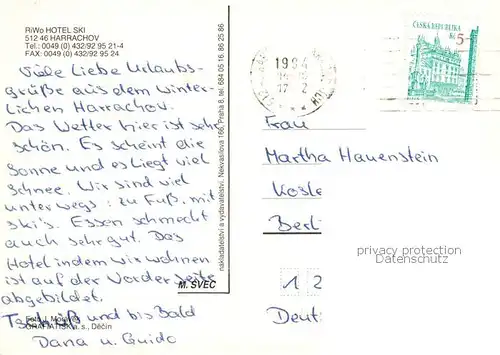 RiWo HOTEL SKI
512 46 HARRACHOV
Tel.: 0049 (0) 432/92 95 21-4
FAX: 0049 (0) 432/92 95 24
Viele Liebe Urlaubs-
grüße aus dem winter-
lichen Harrachov.
Das Wetter hier ist sehr
schön. Es scheint die
Sonne und es liegt viel
Schnee. Wir sind viel
unterwegs: zu Fuß, mit
Ski's. Essen schmeckt
auch sehr gut. Das
Hotel indem wir wohnen
ist auf der Vorderseite
abgebildet.
Tschüß und bis Bald
Dana u. Guido
GRAFIATISK a. s., Děčín
nakladatelství a vydavatelství, Nekvasilova 166, Praha 8, tel. 684 05 16, 86 25 86
M. ŠVEC
ČESKÁ REPUBLIKA
Kč 5
1994
17 2
Frau
Martha Hauenstein
Kosle
Berl
privacy protection
Datenschutz
12
Deut